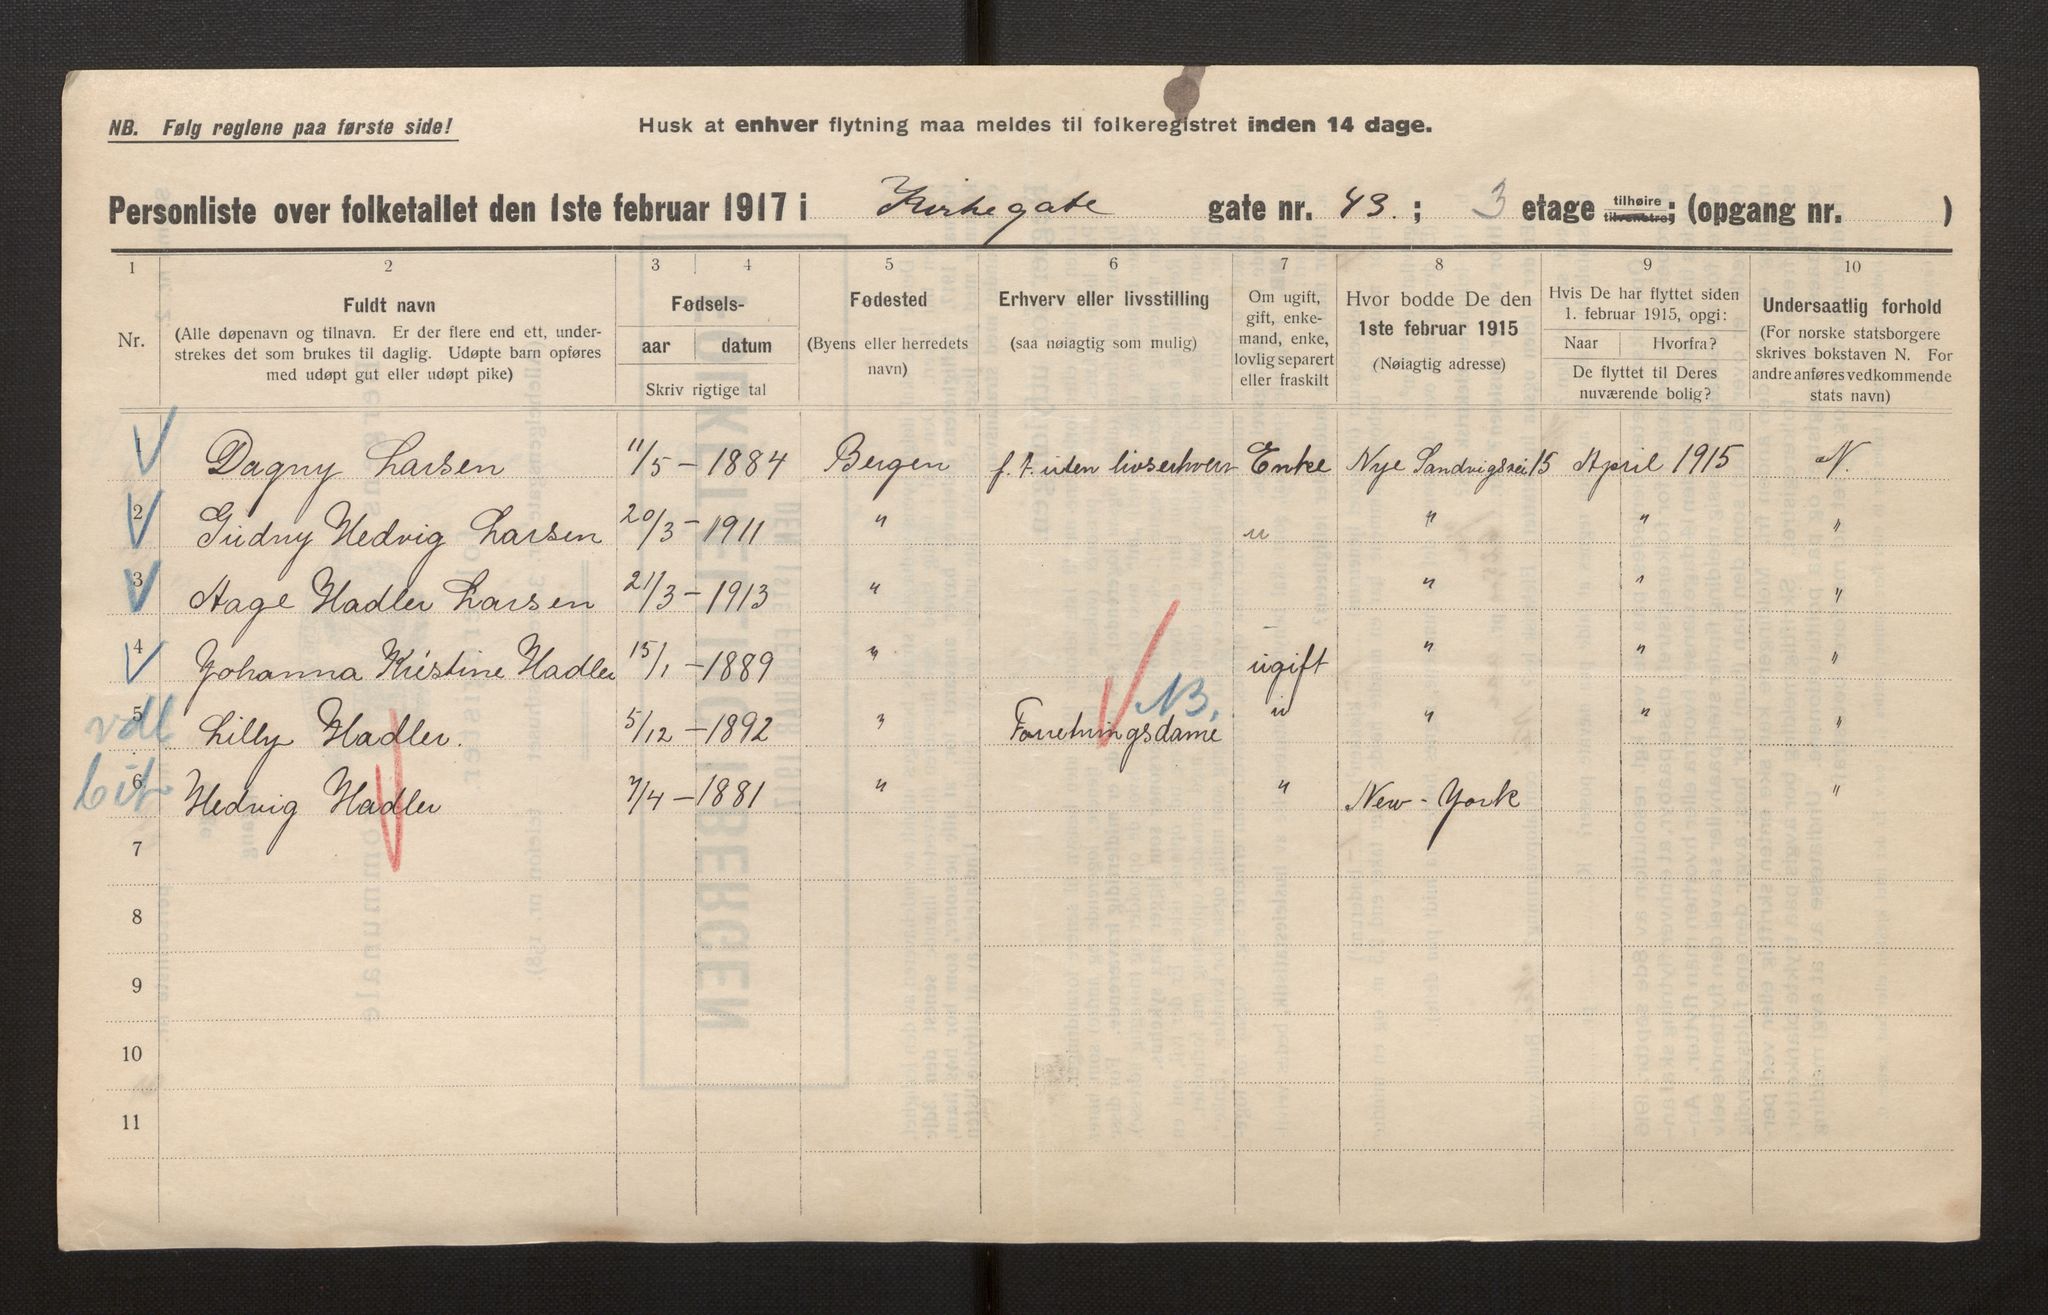 NB. Følg reglene paa første side!
Husk at enhver flytning maa meldes til folkeregistret inden 14 dage.
Personliste over folketallet den 1ste februar 1917 i Kirkegate gate nr. 43. ; 3 etage tilhøire tilvenstre; (opgang nr. )
1 2 3 4 5 6 7 8 9 10
Nr.
Fuldt navn
(Alle døpenavn og tilnavn. Er der flere end ett, under-
strekes det som brukes til daglig. Udøpte barn opføres
med udøpt gut eller udøpt pike)
Fødsels-
aar datum
Skriv rigtige tal
Fødested
(Byens eller herredets
navn)
Erhverv eller livsstilling
(saa nøiagtig som mulig)
Om ugift,
gift, enke-
mand, enke,
lovlig separert
eller fraskilt
Hvor bodde De den
1ste februar 1915
(Nøiagtig adresse)
Hvis De har flyttet siden
1. februar 1915, opgi:
Naar Hvorfra?
De flyttet til Deres
nuværende bolig?
Undersaatlig forhold
(For norske statsborgere
skrives bokstaven N. For
andre anføres vedkommende
stats navn)
1 Dagny Larsen 11/5 - 1884 Bergen f. t. uten livserhverv Enke Nye Sandvigsvei 15 April 1915 N.
2 Gudny Hedvig Larsen 20/3 - 1911 " u " " "
3 Aage Hadler Larsen 21/3 - 1913 " " " "
4 Johanna Kristine Hadler 15/1 - 1889 " ugift " " "
NB.
vdl 5 Lilly Hadler. 5/12 - 1892 " Forretningsdame u " " "
6 Hedvig Hadler 7/4 - 1881 " " New-York "
7
8
9
10
11